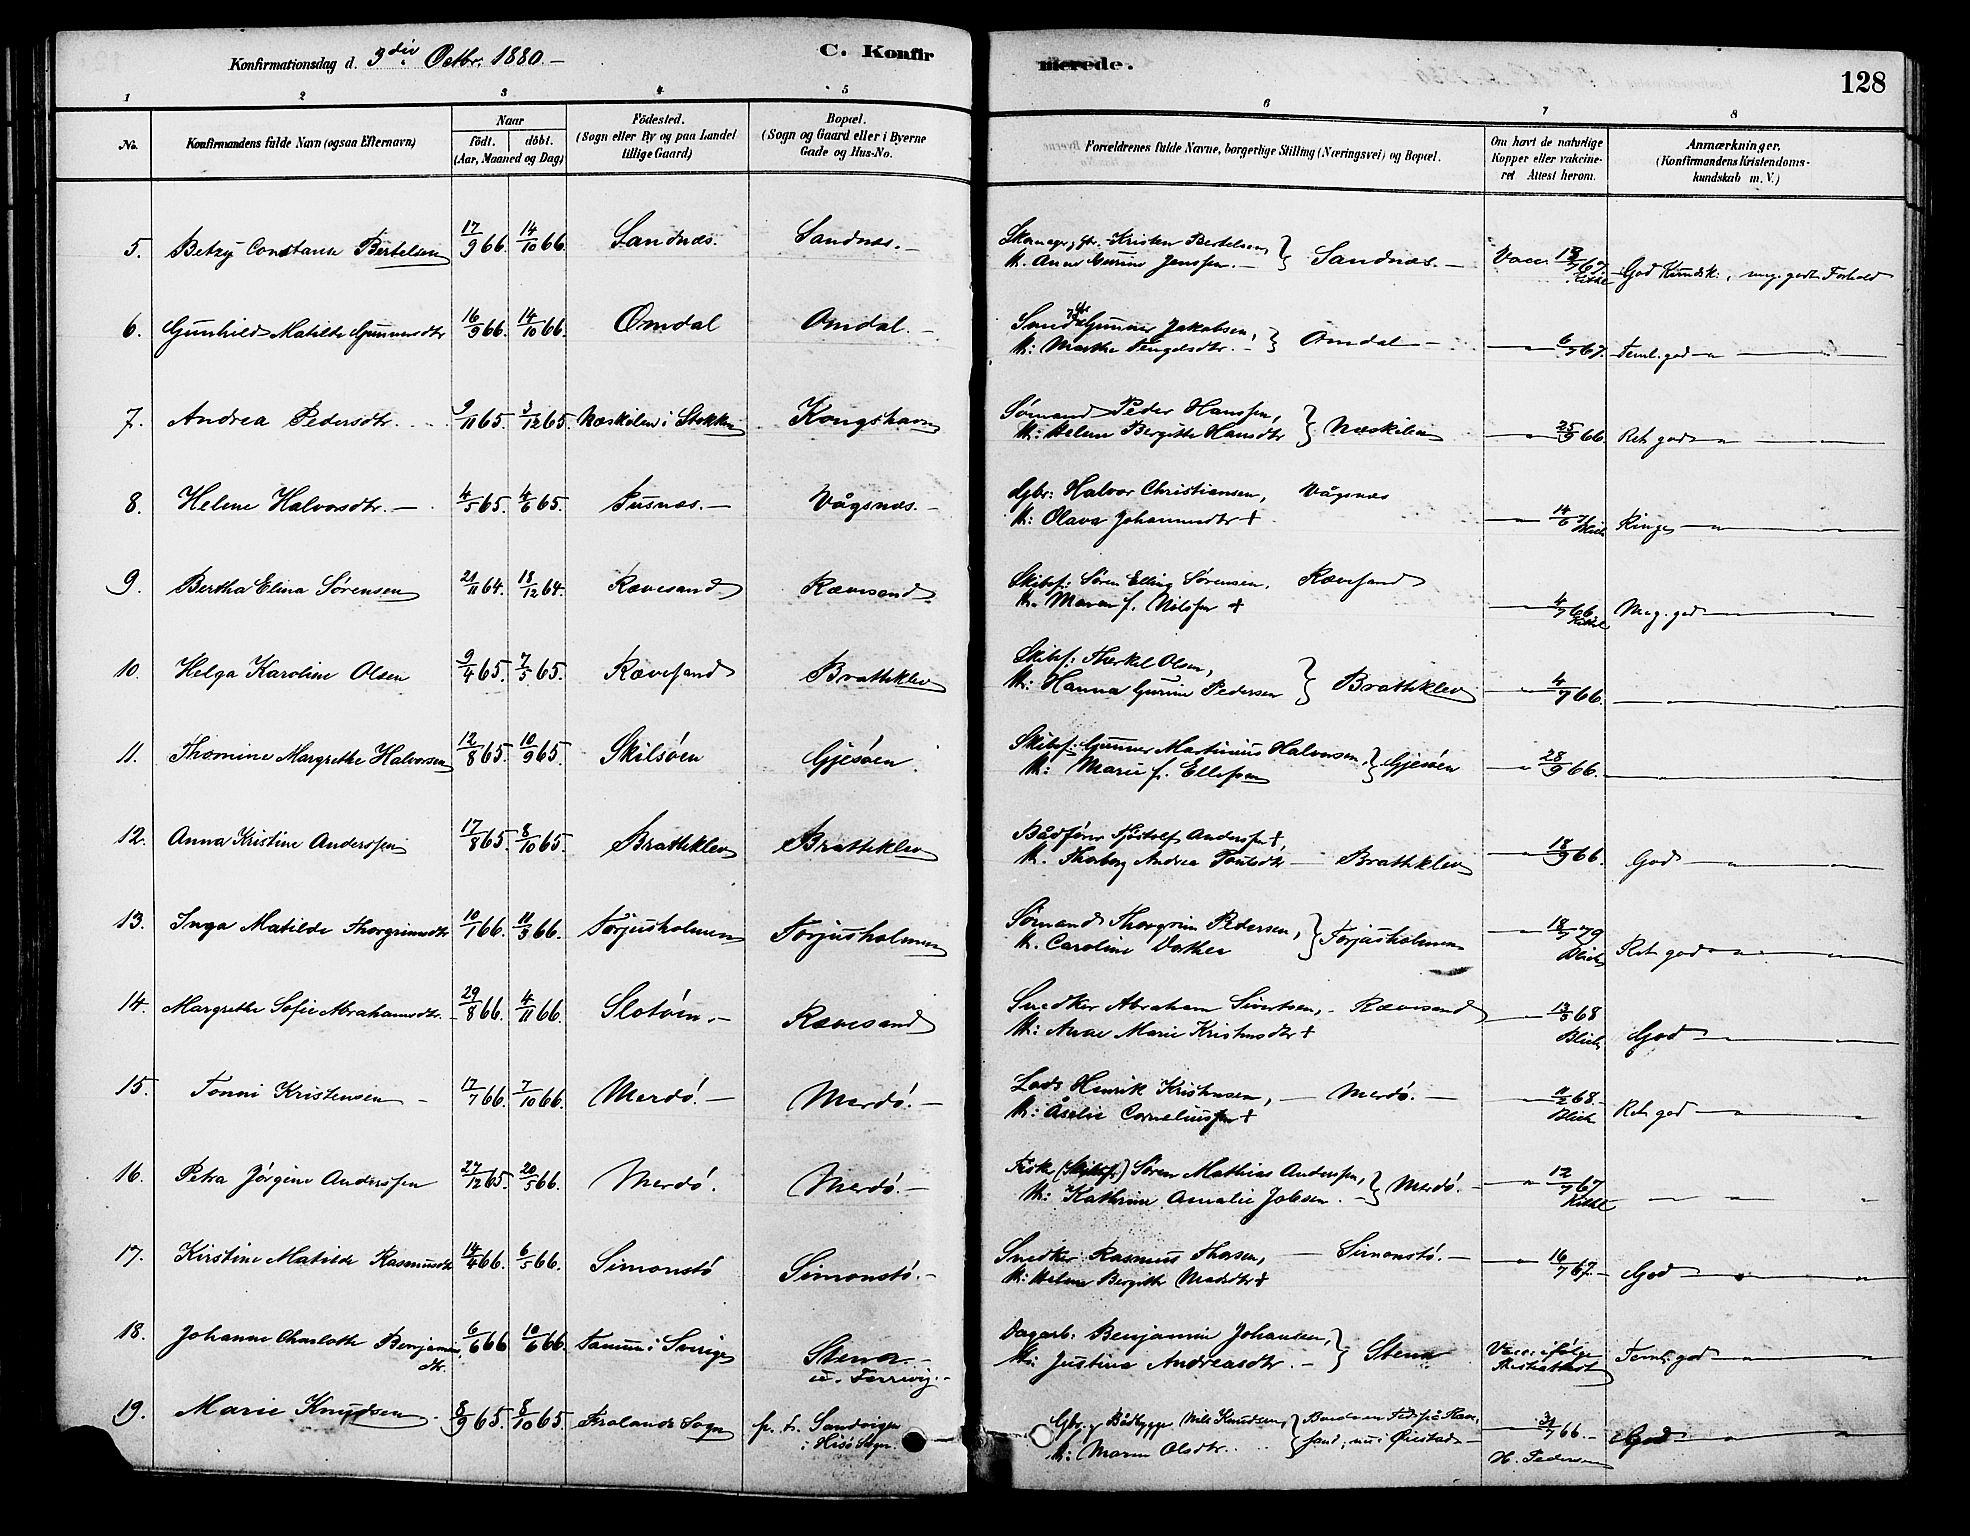 Konfirmationsdag d. 3die Octbr. 1880.—
C. Konfir
merede.
128
1 2 3 4 5 6 7 8
No.
Konfirmandens fulde Navn (ogsaa Efternavn)
Naar
födt. döbt.
(Aar, Maaned og Dag)
Födested.
(Sogn eller By og paa Landet
tillige Gaard)
Bopæl.
(Sogn og Gaard eller i Byerne
Gade og Hus-No.
Forældrenes fulde Navne, borgerlige Stilling (Næringsvei) og Bopæl.
Om havt de naturlige
Kopper eller vakcine-
ret Attest herom.
Anmærkninger.
(Konfirmandens Kristendoms-
kundskab m. V.)
5. Betzy Constance Bertelsen 17/9 66. 14/10 66. Sandnæs. Sandnæs.—
Kristen Bertelsen,
M. Anne Gurine Jenssen.— } Sandnæs.—
Vacc. 67. Kittel God Kundsk., meg. godt Forhold
6. Gunhild Matilde Gunnersdtr 16/9 66. 14/10 66. Omdal Omdal.—
Gunner Jakobsen,
M: Marthe Tengelsdtr.— } Omdal—
—"— 6/7 67. Teml. god —"—
7. Andrea Pedersdtr. 9/11 65. 3/12 65. Næskilen i Stokken Kongshavn
Sømand Peder Hanssen,
M: Helene Bergitte Hansdtr } Næskilen
—"— 25/9 66. Ret god —"—
8. Helene Halvorsdtr.— 4/5 65. 4/6 65. Pusnæs.— Vågsnæs.—
Gbr: Halvor Christiansen, Vågsnæs
M: Olava Johannesdtr +
—"— 14/6 Blich Ringe —"—
9. Bertha Elina Sørensen 21/11 64. 18/12 64. Rævesand Rævesand
Skibsf: Søren Elling Sørensen, Rævesand
M. Maren f. Nilssen +
—"— 4/7 66. Kittel Meg. god —"—
10. Helga Karoline Olsen 9/4 65. 7/5 65. Rævesand Bratteklev
Skibsf: Therkel Olsen,
M: Hanna Gurine Pedersen } Bratteklev
—"— 4/7 66. —"—
11. Thomine Margrethe Halvorsen 12/8 65. 10/9 65. Skilsøen Gjesøen
Skibsf: Gunner Martinius Halvorsen,
M: Marie f. Ellefsen } Gjesøen
—"— 28/9 66. —"—
12. Anna Kristine Anderssen 17/8 65. 8/10 65. Bratteklev Bratteklev
Bådfører Fjøstolf Anderssen +,
M. Thaborg Andrea — Bratteklev
—"— 18/9 66. God —"—
13. Inga Matilde Thorgrimsdtr 10/1 66. 11/3 66. Torjusholmen Torjusholmen
Sømand Thorgrim Pedersen,
M. Caroline } Torjusholmen
—"— 18/7 79 Blich Ret god —"—
14. Margrethe Sofie Abrahamsdtr. 29/8 66. 4/11 66. Slotøen.— Rævesand
Snedker Abraham Sivertsen,— Rævesand
M: Anne Marie Kristensdtr +
—"— 13/5 68 Blich God —"—
15. Tonni Kristensen— 17/7 66. 7/10 66. Merdø.— Merdø.—
Lods Henrik Kristensen,— Merdø.—
M: Åselie Corneliussen +
—"— 11/2 68.— Blich Ret god —"—
16. Petra Jørgine Anderssen 27/12 65. 20/5 66. Merdø. Merdø.—
Søren Mathias Anderssen,
M: Kathrine Amalie Jobsen.— } Merdø.
—"— 12/7 67 Kittel —"—
17. Kirstine Matilde Rasmusdtr 14/4 66. 6/5 66. Simonstø Simonstø.—
Snedker Rasmus Thorsen,— Simonstø.—
M: Helene Bergitte Madsdtr +
—"— 16/7 67.— God —"—
18. Johanne Charlotte Benjamins
dtr. 6/6 66 10/6 66. Tanum i Sverige Stena.—
u. Færvig.—
Dagarb. Benjamin Johansen,
M: Justina Andreasdtr.— } Stena
Vacc. ifølge
Teml. god —"—
19. Marie Knudsen. 8/9 65. 8/10 65. Frolands Sogn Sandvigen
i Hisø Sogn.
Gbr. Bådbygger Nils Knudsen,
M: Maren Olsdtr.
—"— 31/7 66.— God —"—
H. Pedersen